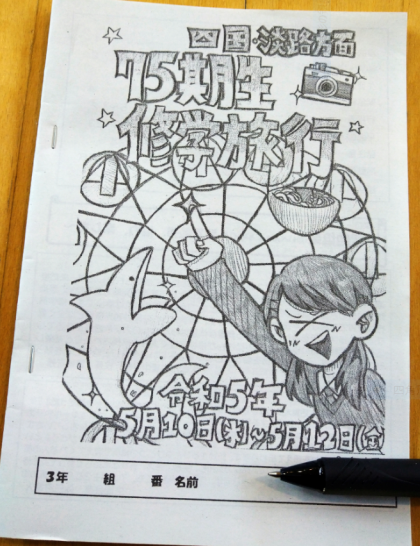 四国・淡路方面
75期生
修学旅行
令和5年
5月10日(水)~5月12日(金)
3年 組 番 名前